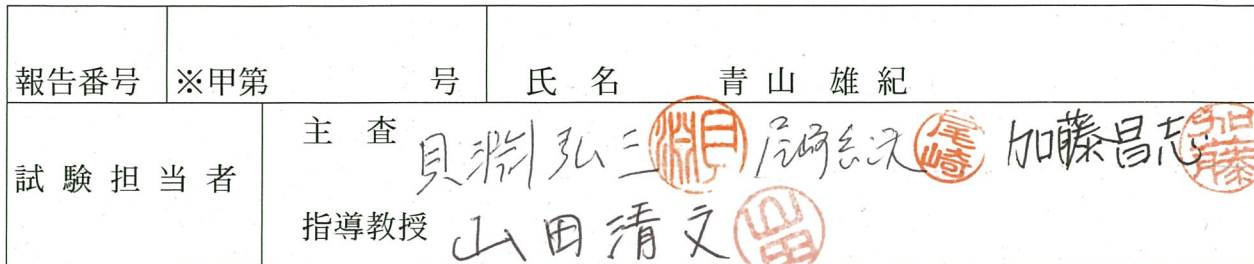 報告番号 ※甲第 号 氏 名 青 山 雄 紀
試 験 担 当 者
主 査 貝淵弘三 尾崎紀夫 尾崎 加藤昌志 加藤
指導教授 山田清文 山田